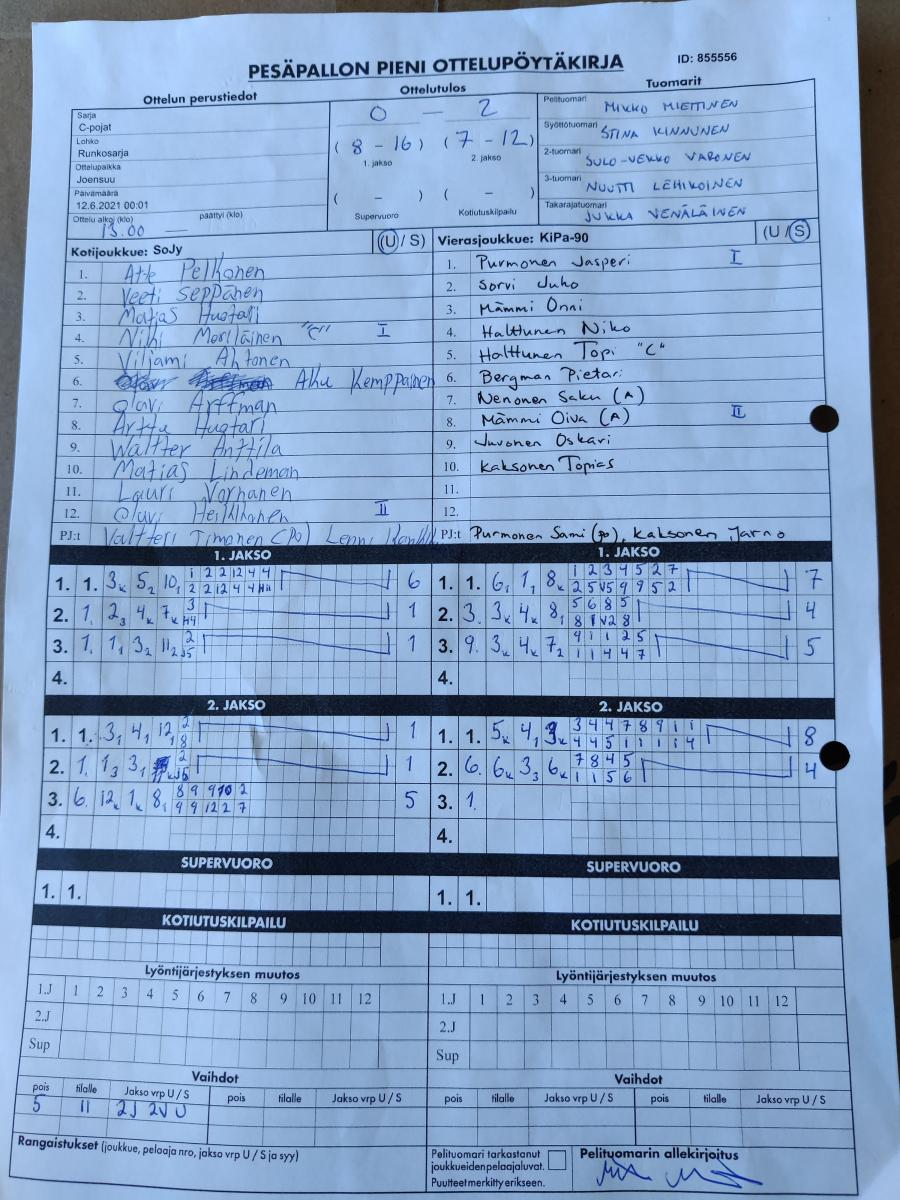 PESÄPALLON PIENI OTTELUPÖYTÄKIRJA
ID: 855556
Ottelun perustiedot
Sarja
C-pojat
Lohko
Runkosarja
Ottelupaikka
Joensuu
Päivämäärä
12.6.2021 00:01
Ottelu alkoi (klo) päättyi (klo)
13.00 —
Ottelutulos
0 — 2
(8 - 16) (7 - 12)
1. jakso 2. jakso
( - ) ( - )
Supervuoro Kotiutuskilpailu
Tuomarit
Pelituomari MIKKO MIETTINEN
Syöttötuomari STINA KINNUNEN
2-tuomari SULO-VEIKKO VARONEN
3-tuomari NUUTTI LEHIKOINEN
Takarajatuomari JUKKA VENÄLÄINEN
Kotijoukkue: SoJy (U / S)
1. Atte Pelkonen
2. Veeti Seppänen
3. Matias Huotari
4. "C" I
5. Viljami Ahtonen
6. Aku Kemppainen
7. Olavi Arffman
8. Arttu Huotari
9. Waltter Anttila
10. Matias Lindeman
11. Lauri Vornanen
12. Olavi Heikkinen II
PJ:t Valtteri Timonen (PJ) Lenni
Vierasjoukkue: KiPa-90 (U / S)
1. Purmonen Jasperi I
2. Sorvi Juho
3. Mämmi Onni
4. Halttunen Niko
5. Halttunen Topi "C"
6. Bergman Pietari
7. Nenonen Saku (A)
8. Mämmi Oiva (A) II
9. Juvonen Oskari
10. Kaksonen Topias
11.
12.
PJ:t Purmonen Sami (pj), Kaksonen Jarno
1. JAKSO
1. 1. 3k 5₂ 10₁ 6
2. 1. 2₃ 4k 7k 1
3. 1. 1₁ 3₂ 11₂ 1
4.
1. JAKSO
1. 1. 6₁ 1₁ 8k 1 2 3 4 5 2 7 7
2. 3. 3k 4k 8₁ 5 6 8 5 4
3. 9. 3k 4k 7₂ 5
1 1 4 4 7
4.
2. JAKSO
1. 1. 3₁ 4₁ 12₁ 2 1
8
2. 1. 1₃ 3₁ 1
3. 6. 12k 1k 8₁ 8 9 9 10 2 5
9 9 12 2 7
4.
2. JAKSO
1. 1. 5k 4₁ 3k 3 4 4 7 8 9 1 1 8
4 4 5 1 1 1 1 4
2. 6. 6k 3₃ 6k 7 8 4 5 4
1 1 5 6
3. 1.
4.
SUPERVUORO
1. 1.
SUPERVUORO
1. 1.
KOTIUTUSKILPAILU
KOTIUTUSKILPAILU
Lyöntijärjestyksen muutos
1.J 1 2 3 4 5 6 7 8 9 10 11 12
2.J
Sup
Lyöntijärjestyksen muutos
1.J 1 2 3 4 5 6 7 8 9 10 11 12
2.J
Sup
Vaihdot
pois tilalle Jakso vrp U / S pois tilalle Jakso vrp U / S
5 11 2J 2V U
Vaihdot
pois tilalle Jakso vrp U / S pois tilalle Jakso vrp U / S
Rangaistukset (joukkue, pelaaja nro, jakso vrp U / S ja syy)
Pelituomari tarkastanut
joukkueidenpelaajaluvat.
Puutteet merkitty erikseen.
Pelituomarin allekirjoitus